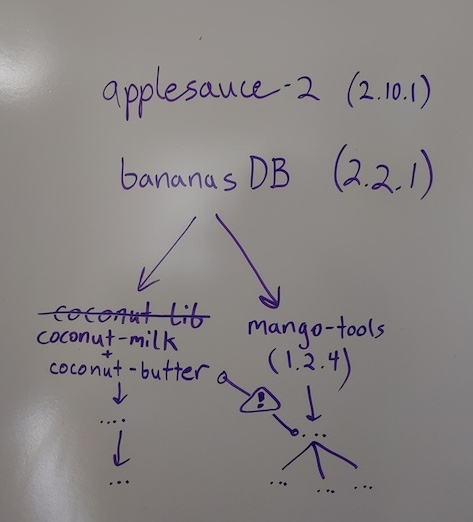 applesauce-2 (2.10.1)
bananas DB (2.2.1)
coconut lib
coconut-milk
+
coconut-butter
....
...
mango-tools
(1.2.4)
!
....
...
...
...